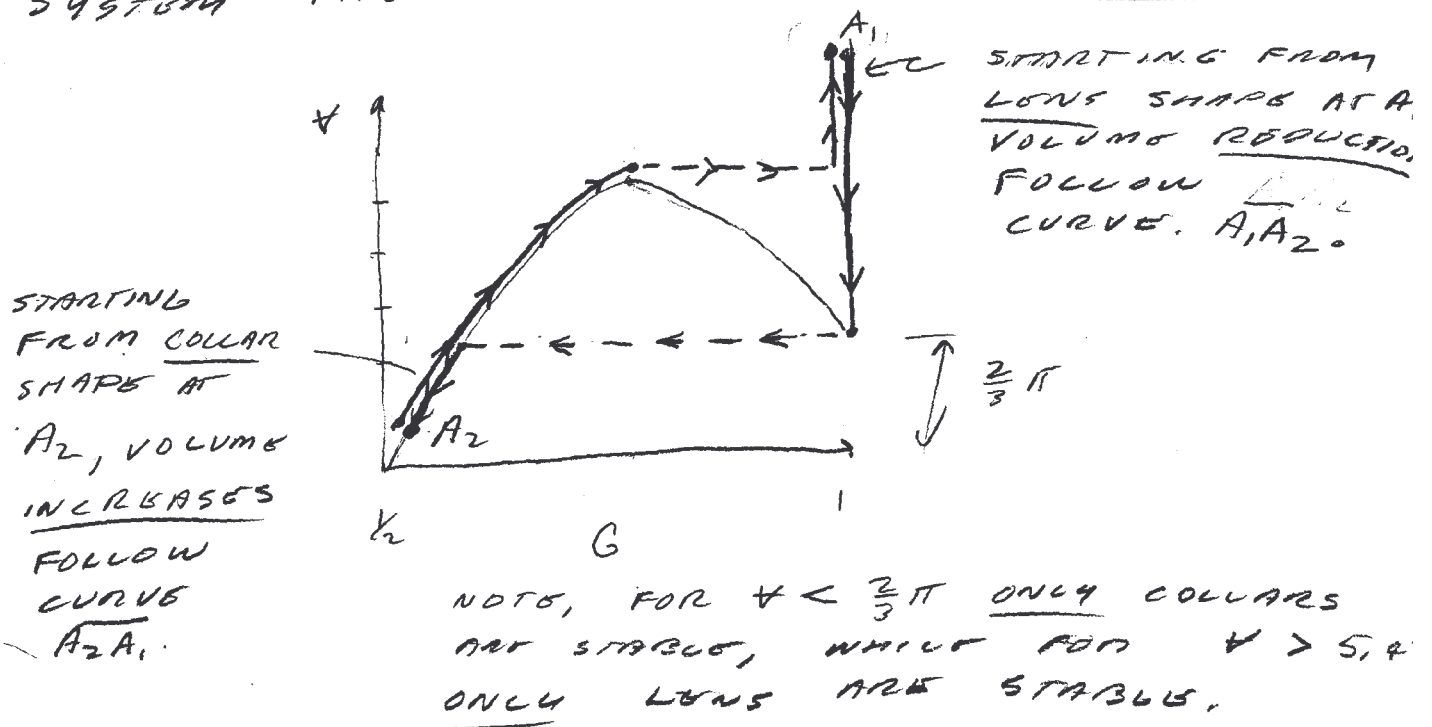 SYSTEM
A₁
STARTING FROM
LENS SHAPE AT A
VOLUME REDUCTIO
FOLLOW
CURVE. A₁A₂.
∀
STARTING
FROM COLLAR
SHAPE AT
A₂, VOLUME
INCREASES
FOLLOW
CURVE
A₂A₁.
A₂
2/3 π
1/2
G
1
NOTE, FOR ∀ < 2/3 π ONLY COLLARS
ARE STABLE, WHILE FOR ∀ > 5,4
ONLY LENS ARE STABLE.